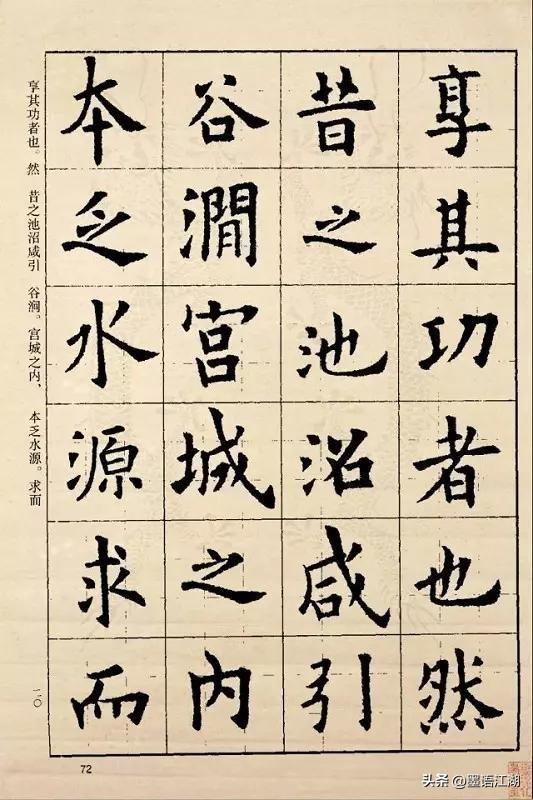 享其功者也然
昔之池沼咸引
谷澗宮城之内
本乏水源求而
享其功者也。然 昔之池沼咸引 谷涧。宫城之内、 本乏水源。求而
二〇
72
头条 @墨语江湖